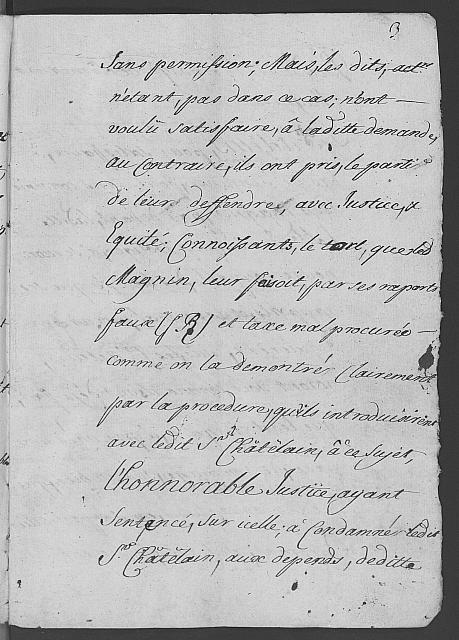 3
Sans permission; Mais, les dits, act.rs
n'étant, pas dans ce cas; n'ont —
voulû satisfaire, â laditte demande,
au Contraire, ils ont pris, le parti
de leurs deffendre, avec Justice, &
Equité; Connoissants, le tort, que led
Magnin, leur faisoit, par ses raports
faux (S.R.) et taxe mal procurée —
comme on la demontrés Clairement
par la procedure, qu'ils introduisirent
avec ledit S.r Châtêlain, â ce sujet,
l'honnorable Justice, ayant
Sentencé, sur icelle; â Condamnér ledit
S.r Châtêlain, aux depends, de ditte